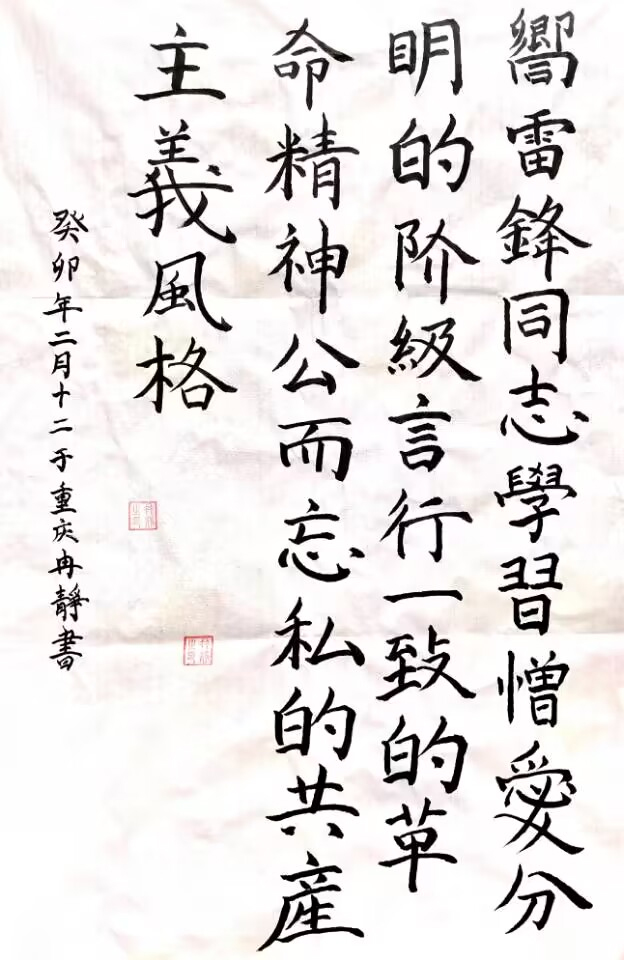 嚮雷鋒同志學習憎愛分
明的阶級言行一致的革
命精神公而忘私的共産
主義風格
癸卯年二月十二于重庆冉靜書